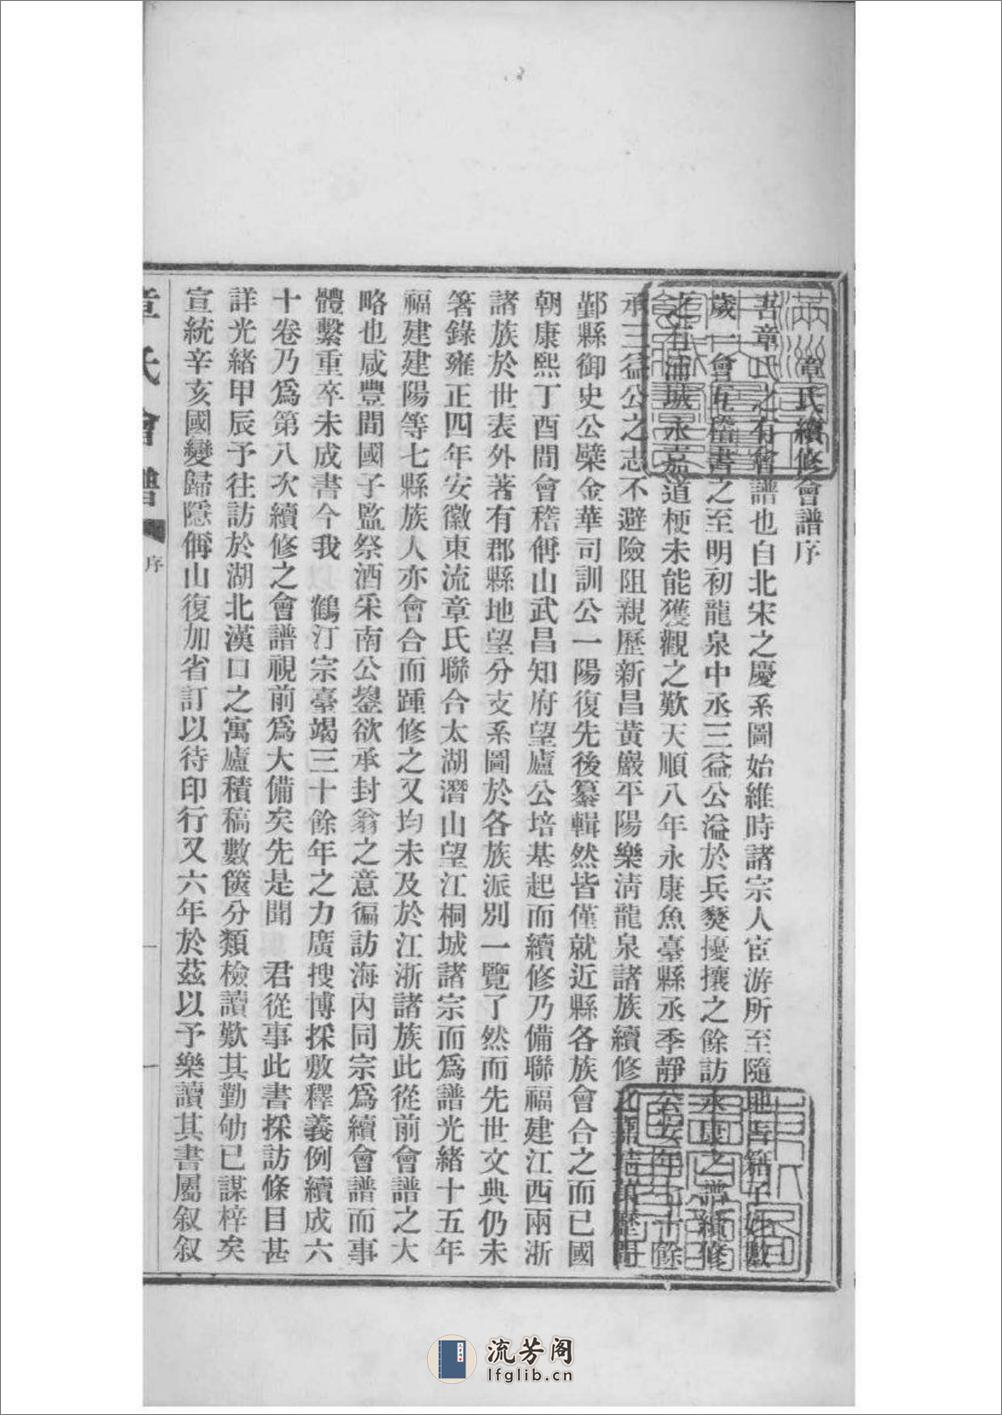 章氏續修會譜序
吾章氏之有會譜也自北宋之慶系圖始維時諸宗人宦游所至隨地書籍子姓數
歲一會互稽書之至明初龍泉中丞三益公溢於兵燹擾攘之餘訪永康之譜續修
之有浦城永嘉道梗未能獲觀之歎天順八年永康魚臺縣丞季靜公安年七十餘
承三益公之志不避險阻親歷新昌黃巖平陽樂淸龍泉諸族續修之萬歷間
鄞縣御史公檗金華司訓公一陽復先後纂輯然皆僅就近縣各族會合之而已國
朝康熙丁酉間會稽偁山武昌知府望廬公培基起而續修乃備聯福建江西兩浙
諸族於世表外著有郡縣地望分支系圖於各族派別一覽了然而先世文典仍未
箸錄雍正四年安徽東流章氏聯合太湖潛山望江桐城諸宗而爲譜光緒十五年
福建建陽等七縣族人亦會合而踵修之又均未及於江浙諸族此從前會譜之大
略也咸豐間國子監祭酒采南公鋆欲承封翁之意徧訪海內同宗爲續會譜而事
體繫重卒未成書今我 鶴汀宗臺竭三十餘年之力廣搜博採敷釋義例續成六
十卷乃爲第八次續修之會譜視前爲大備矣先是聞 君從事此書採訪條目甚
詳光緒甲辰予往訪於湖北漢口之寓廬積稿數篋分類檢讀歎其勤劬已謀梓矣
宣統辛亥國變歸隱偁山復加省訂以待印行又六年於茲以予樂讀其書屬叙叙
章氏會譜 序 一
流芳阁
lfglib.cn